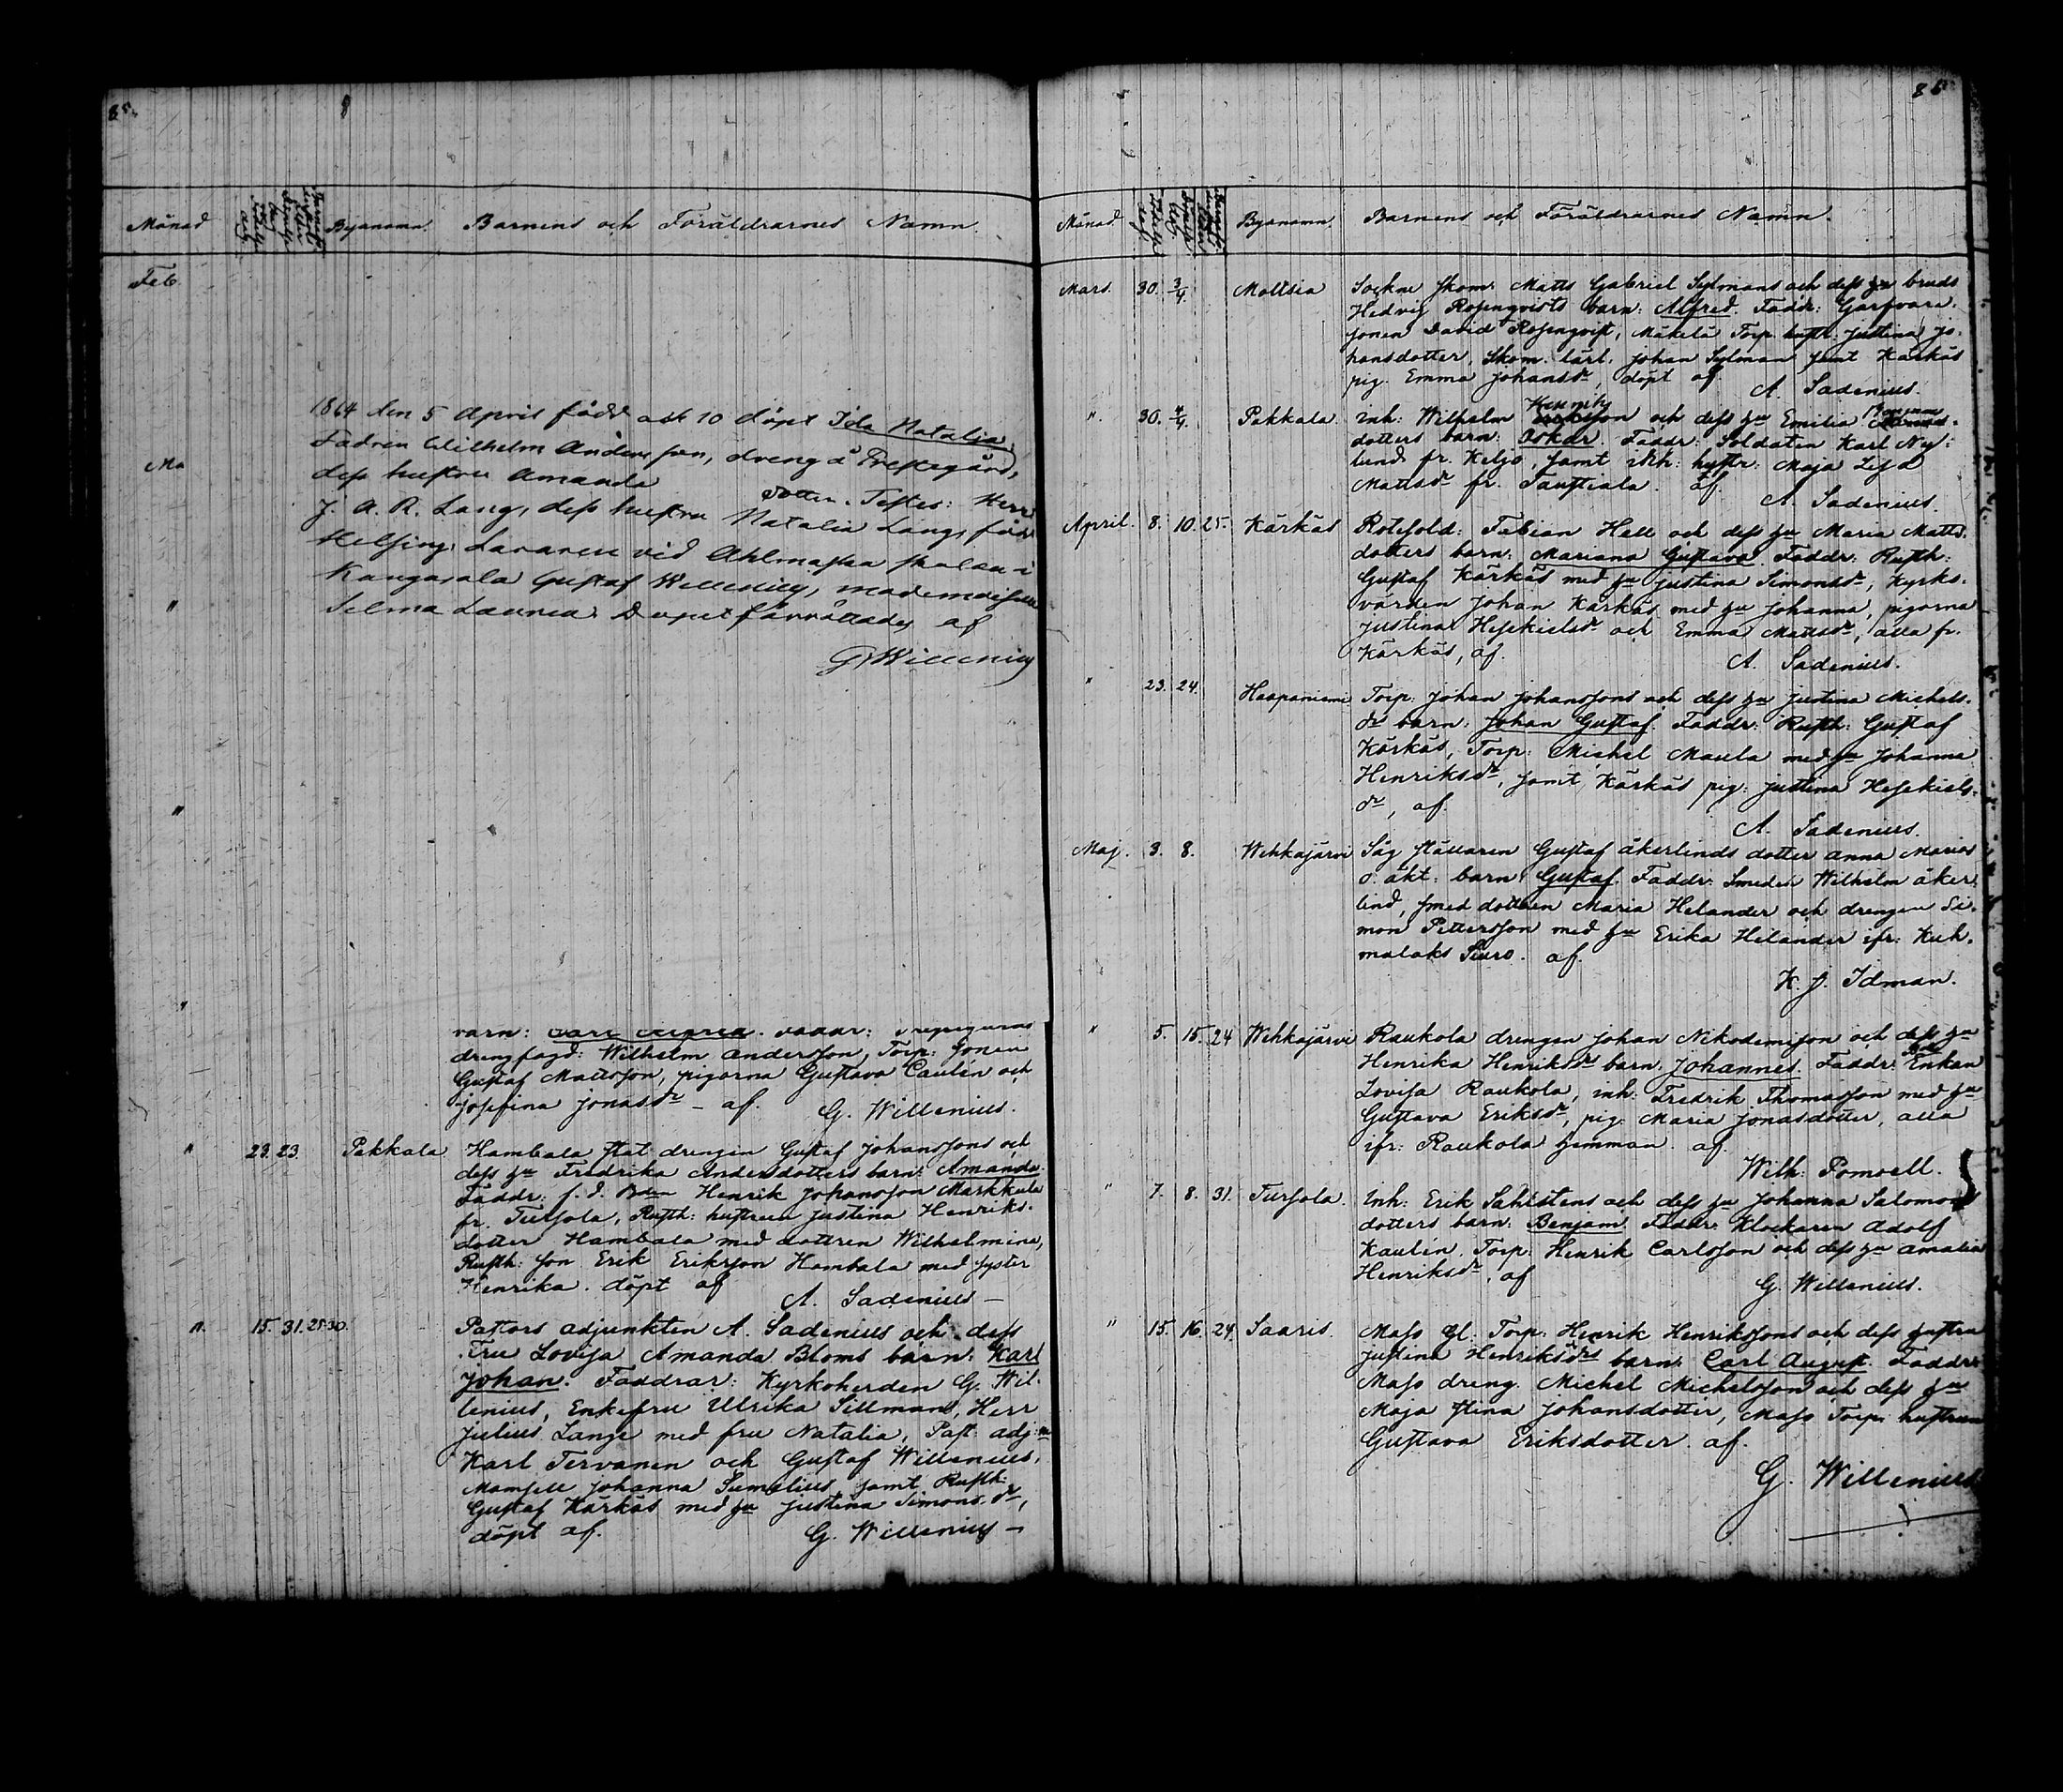 85.
8
Månad Byanamn. Barnens och Föräldrarnes Namn.
Feb.
1864 den 5 April född och 10 döpt Ida Natalia,
Fadren Wilhelm Andersson, dreng å Prestegård,
dess hustru Amanda
dotter. Testes: Herr
J. A. R. Lang, dess hustru Natalia Lang, född
Helsing, Lararen vid Ahlmanska skolan i
Kangasala Gustaf Willenius, mademoiselle
Selma Laurea. Dopet förrättades af
G. Willenius
Ma
"
"
"
barn: Faddr:
drengfogd: Wilhelm Andersson, Torp: Sonen
Gustaf Mattsson, pigorna Gustava Caulén och
Josefina Jonasdr – af. G. Willenius.
" 23. 23. Pakkala Hambala stat drengen Gustaf Johanssons och
dess hu Fredrika Andersdotters barn: Amanda.
Faddr: f. d. Bden Henrik Johansson Markkula
fr. Tursola, Rusth: hustrun Justina Henriks-
dotter Hambala med dottren Wilhelmina,
Rusth: Son Erik Eriksson Hambala med syster
Henrika. döpt af
A. Sadenius –
". 15. 31. 25. 30. Pastors adjunkten A. Sadenius och dess
Fru Lovisa Amanda Bloms barn: Karl
Johan. Faddrar: Kyrkoherden G. Wil-
lenius, Enkefru Ulrika Sillman, Herr
Julius Lange med fru Natalia, Past. adj:
Karl Tervanen och Gustaf Willenius,
Mamsell Johanna Sumelius, samt Rusth:
Gustaf Kärkäs med hu Justina Simonsdr,
döpt af. G. Willenius –
86
Månad. Byanamn. Barnens och Föräldrarnes Namn.
Mars. 30. 3/4. Mattsia Sockne skom: Matts Gabriel Sylmans och dess hu bruds
Hedvig Rosenqvists barn: Alfred. Faddr: Garfvare-
sonen David Rosenqvist, Mäkelä Torp. hustr. Justina Jo-
hansdotter, Skom. lärl. Johan Sylman samt Kärkäs
pig. Emma Johansdr, döpt af.
A. Sadenius.
" 30. 4/4. Pakkala. Inh: Wilhelm Henriksson och dess hu Emilia
dotters barn: Oskar. Faddr: Soldaten Karl Ny-
lund fr. Keljo, samt inh: hustr. Maja Lisa
Mattsdr fr. Saustiala. af.
A. Sadenius.
April. 8. 10. 25. Kärkäs Rotesold: Fabian Hell och dess hu Maria Matts-
dotters barn: Mariana Gustava. Faddr: Rusth:
Gustaf Kärkäs med hu Justina Simonsdr, Kyrko-
värden Johan Kärkäs med hu Johanna, pigorna
Justina Hesekielsdr och Emma Mattsdr, alla fr.
Kärkäs, af.
A. Sadenius.
" 23. 24. Haapaniemi Torp: Johan Johanssons och dess hu Justina Michels-
drs barn: Johan Gustaf. Faddr: Rusth: Gustaf
Kärkäs, Torp: Michel Maula med hu Johanna
Henriksdr, samt Kärkäs pig: Justina Hesekiels-
dr, af.
A. Sadenius.
Maj. 3. 8. Wehkajärvi Såg ställaren Gustaf Åkerlinds dotter Anna Marias
o. äkt: barn: Gustaf. Faddr: Smeden Wilhelm Åker-
lind, smed dottren Maria Helander och drengen Si-
mon Pettersson med hu Erika Helander ifr: Kuh-
malaks Siuro. af.
K. J. Idman.
" 5. 15. 24 Wehkajärvi Raukola drengen Johan Nikodemison och dess hu
Henrika Henriksdrs barn: Johannes. Faddr: Enkan
Lovisa Raukola, inh: Fredrik Thomasson med hu
Gustava Eriksdr, pig: Maria Jonasdotter, alla
ifr: Raukola hemman. af.
Wilh: Pomoell.
" 7. 8. 31. Tursola. Inh: Erik Sahlstens och dess hu Johanna Salomons
dotters barn: Benjam. Faddr: Klockaren Adolf
Kaulén, Torp: Henrik Carlsson och dess hu Amalia
Henriksdr, af
G. Willenius.
" 15. 16. 24. Saaris. Maso Gl: Torp: Henrik Henrikssons och dess hustru
Justina Henriksdrs barn: Carl August. Faddr:
Maso dreng. Michel Michelsson och dess hu
Maja Stina Johansdotter, Maso Torp: hustrun
Gustava Eriksdotter. af.
G. Willenius